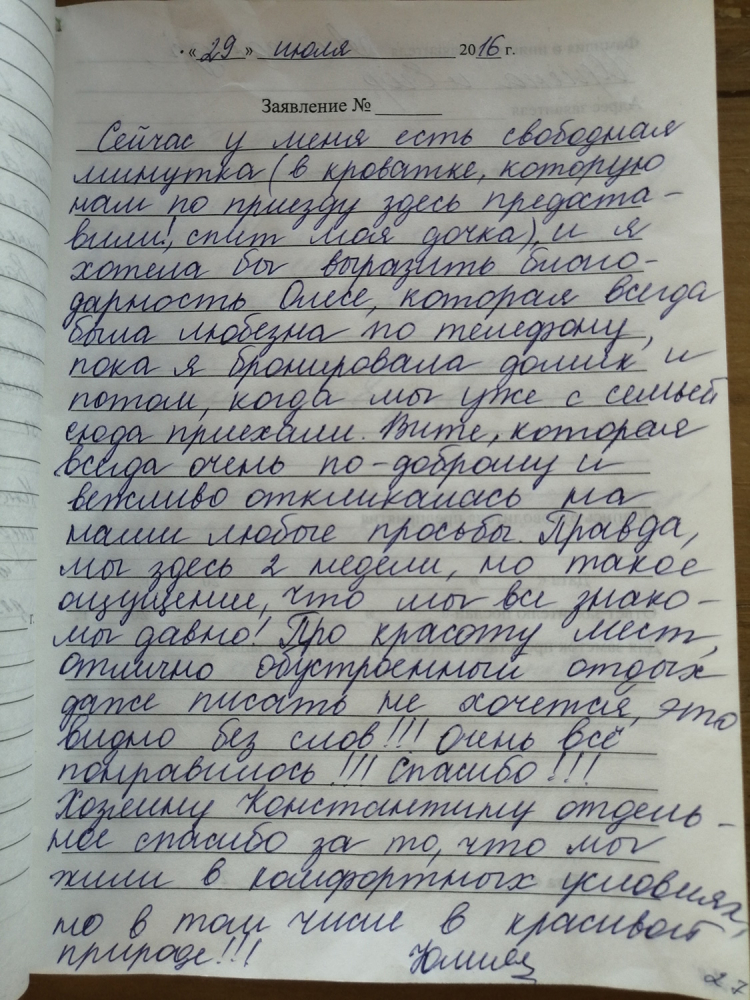 « 29 » июля 2016 г.
Заявление №
Сейчас у меня есть свободная
минутка (в кроватке, которую
нам по приезду здесь предоста-
вили!, спит моя дочка), и я
хотела бы выразить благо-
дарность Олесе, которая всегда
была любезна по телефону,
пока я бронировала домик и
потом, когда мы уже с семьей
сюда приехали. Вите, которая
всегда очень по-доброму и
вежливо откликалась на
наши любые просьбы. Правда,
мы здесь 2 недели, но такое
ощущение, что мы все знако-
мы давно! Про красоту мест,
отлично обустроенный отдых
даже писать не хочется, это
видно без слов!!! Очень всё
понравилось!!! Спасибо!!!
Хозяину Константину отдель-
ное спасибо за то, что мы
жили в комфортных условиях,
но в том числе в красивой
природе!!! Юлия
27